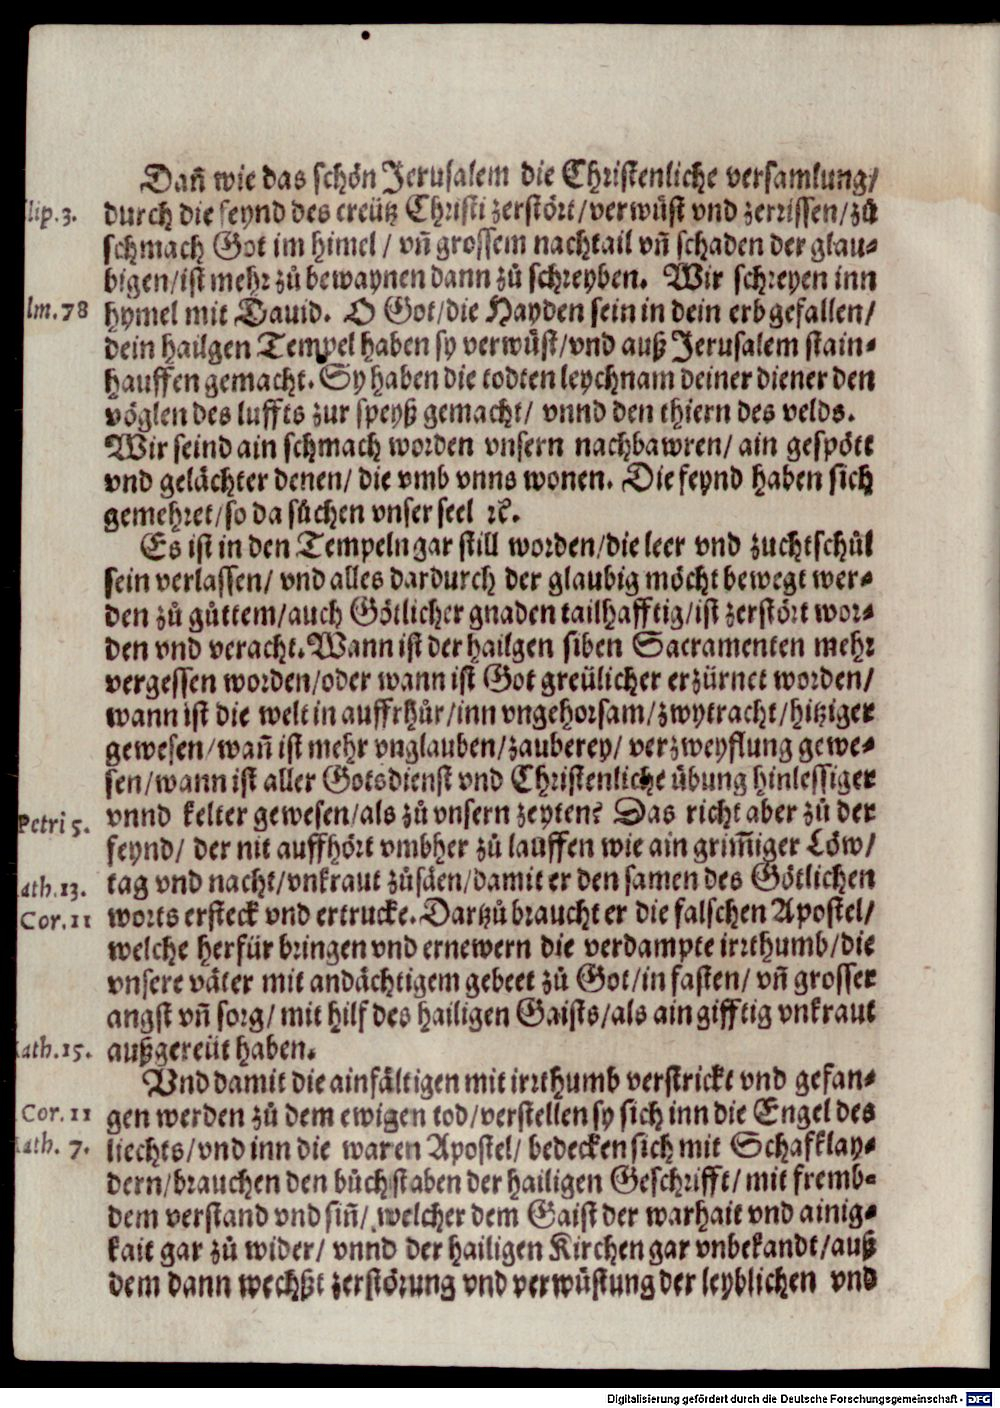 Dañ wie das schön Jerusalem die Christenliche versamlung/
lip.3. durch die feynd des creütz Christi zerstört/verwüst vnd zerrissen/zů
schmach Got im himel/ vñ grossem nachtail vñ schaden der glau-
bigen/ist mehr zů bewaynen dann zů schreyben. Wir schreyen inn
lm.78 hymel mit Dauid. O Got/die Hayden sein in dein erb gefallen/
dein hailgen Tempel haben sy verwüst/vnd auß Jerusalem stain-
hauffen gemacht. Sy haben die todten leychnam deiner diener den
vöglen des luffts zur speyß gemacht/ vnnd den thiern des velds.
Wir seind ain schmach worden vnsern nachbawren/ ain gespött
vnd gelächter denen/ die vmb vnns wonen. Die feynd haben sich
gemehret/so da sůchen vnser seel ꝛc.
Es ist in den Tempeln gar still worden/die leer vnd zuchtschůl
sein verlassen/ vnd alles dardurch der glaubig möcht bewegt wer-
den zů gůttem/auch Götlicher gnaden tailhafftig/ist zerstört wor-
den vnd veracht. Wann ist der hailgen siben Sacramenten mehr
vergessen worden/oder wann ist Got greülicher erzürnet worden/
wann ist die welt in auffrhůr/inn vngehorsam/zwytracht/hitziger
gewesen/wañ ist mehr vnglauben/zauberey/ verzweyflung gewe-
sen/wann ist aller Gotsdienst vnd Christenliche übung hinlessiger
Petri 5. vnnd kelter gewesen/als zů vnsern zeyten? Das richt aber zů der
feynd/ der nit auffhört vmbher zů lauffen wie ain grim̃iger Löw/
ath.13. tag vnd nacht/vnkraut zůsäen/damit er den samen des Götlichen
Cor.11 worts ersteck vnd ertrucke. Dartzů braucht er die falschen Apostel/
welche herfür bringen vnd ernewern die verdampte irrthumb/die
vnsere väter mit andächtigem gebeet zů Got/in fasten/ vñ grosser
angst vñ sorg/ mit hilf des hailigen Gaists/als ain gifftig vnkraut
ath.15. außgereüt haben.
Vnd damit die ainfältigen mit irrthumb verstrickt vnd gefan-
Cor.11 gen werden zů dem ewigen tod/verstellen sy sich inn die Engel des
ath. 7. liechts/vnd inn die waren Apostel/ bedecken sich mit Schafklay-
dern/brauchen den bůchstaben der hailigen Geschrifft/ mit fremb-
dem verstand vnd siñ/ welcher dem Gaist der warhait vnd ainig-
kait gar zů wider/ vnnd der hailigen Kirchen gar vnbekandt/auß
dem dann wechßt zerstörung vnd verwüstung der leyblichen vnd
Digitalisierung gefördert durch die Deutsche Forschungsgemeinschaft - DFG